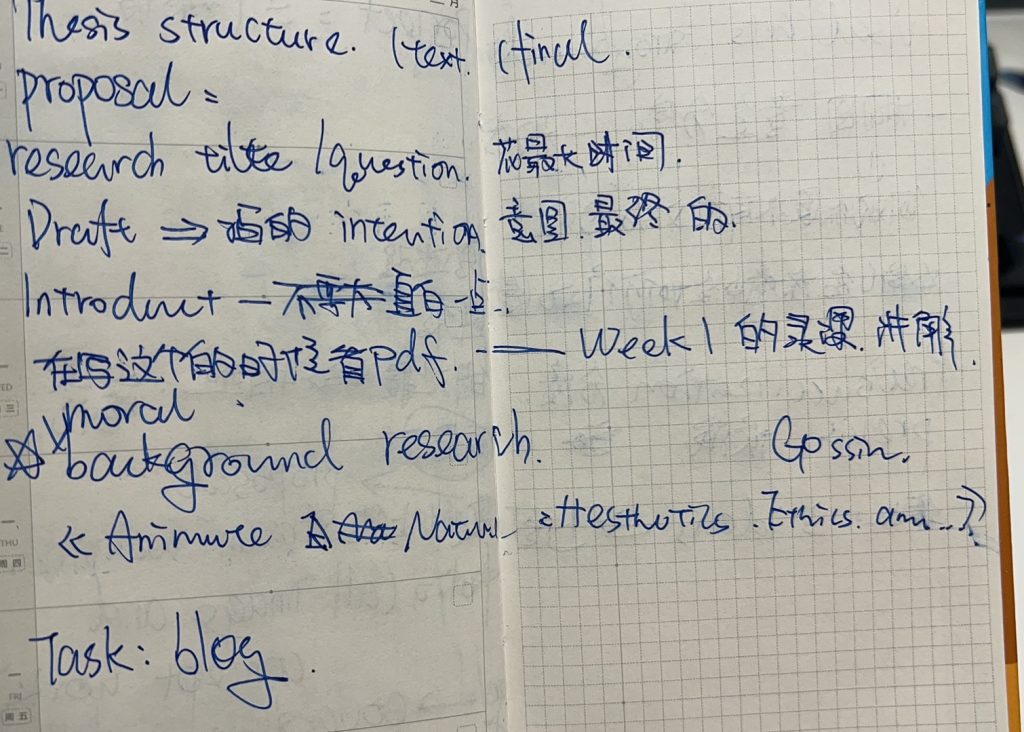 Thesis structure. (text. (final.
proposal:
research title / question. 花最长时间.
Draft ⇒ 的 intention. 意图. 最终的.
Introduct — 不要太直白一点.
在写这个的时候看pdf. —— Week 1 的录课. 讲解.
moral
☆ background research. Gossin.
《 Natural : Aesthetics. Ethics. and ...》
Task: blog.
月
WED
三
THU
周四
FRI
周五